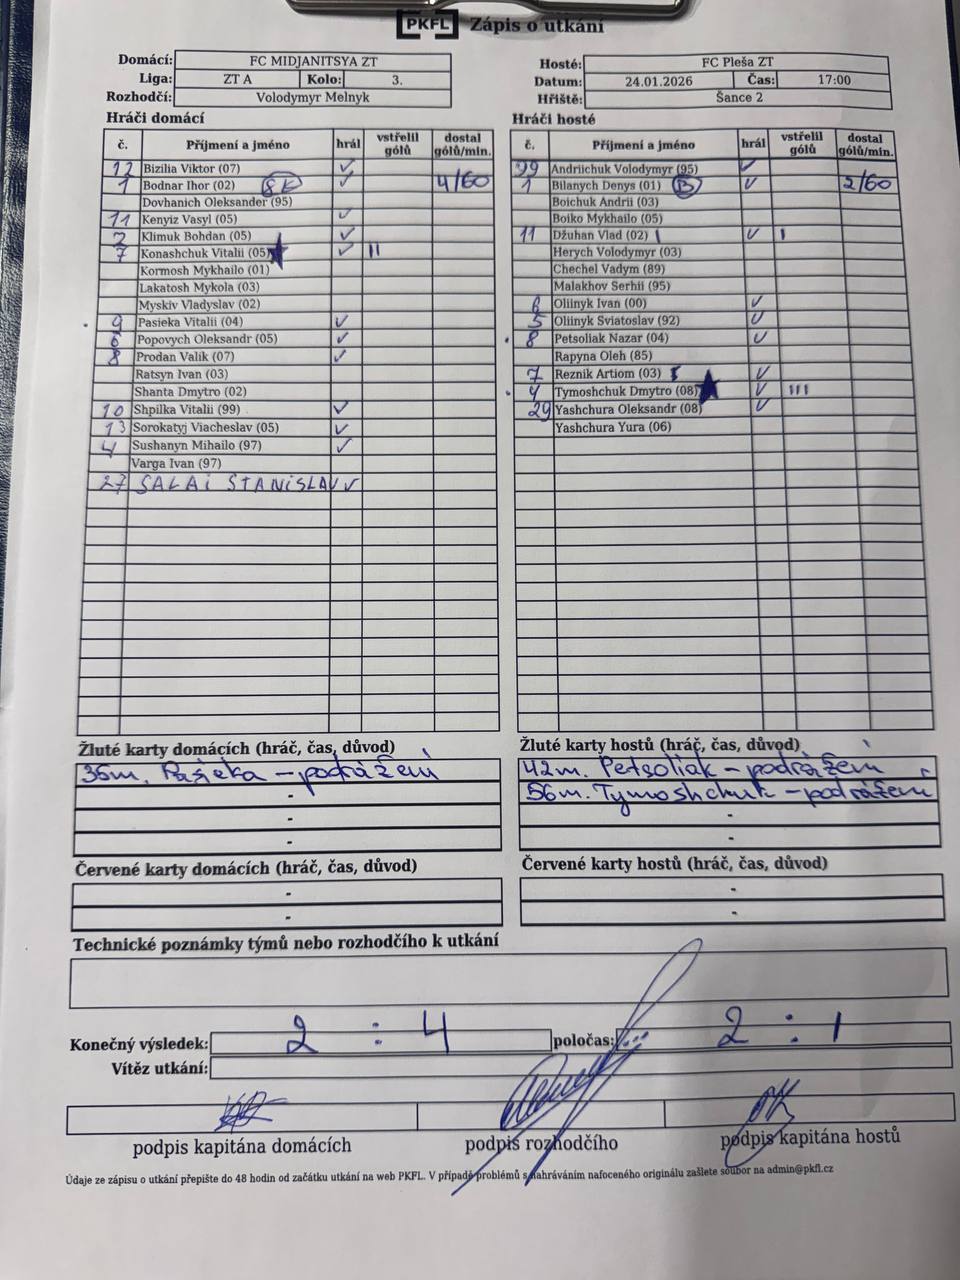 PKFL Zápis o utkání
Domácí: FC MIDJANITSYA ZT
Liga: ZT A Kolo: 3.
Rozhodčí: Volodymyr Melnyk
Hosté: FC Pleša ZT
Datum: 24.01.2026 Čas: 17:00
Hřiště: Šance 2
Hráči domácí
č. Příjmení a jméno hrál vstřelil gólů dostal gólů/min.
12 Bizilia Viktor (07) ✓
1 Bodnar Ihor (02) ✓ 4/60
Dovhanich Oleksander (95)
11 Kenyiz Vasyl (05) ✓
2 Klimuk Bohdan (05) ✓
7 Konashchuk Vitalii (05) ★ ✓ II
Kormosh Mykhailo (01)
Lakatosh Mykola (03)
Myskiv Vladyslav (02)
9 Pasieka Vitalii (04) ✓
6 Popovych Oleksandr (05) ✓
8 Prodan Valik (07) ✓
Ratsyn Ivan (03)
Shanta Dmytro (02)
10 Shpilka Vitalii (99) ✓
13 Sorokatyj Viacheslav (05) ✓
4 Sushanyn Mihailo (97) ✓
Varga Ivan (97)
27 SALAI STANISLAV ✓
Hráči hosté
č. Příjmení a jméno hrál vstřelil gólů dostal gólů/min.
99 Andriichuk Volodymyr (95) ✓
1 Bilanych Denys (01) B ✓ 2/60
Boichuk Andrii (03)
Boiko Mykhailo (05)
11 Džuhan Vlad (02) ✓ I
Herych Volodymyr (03)
Chechel Vadym (89)
Malakhov Serhii (95)
6 Oliinyk Ivan (00) ✓
5 Oliinyk Sviatoslav (92) ✓
8 Petsoliak Nazar (04) ✓
Rapyna Oleh (85)
7 Reznik Artiom (03) ✓
4 Tymoshchuk Dmytro (08) ★ ✓ III
29 Yashchura Oleksandr (08) ✓
Yashchura Yura (06)
Žluté karty domácích (hráč, čas, důvod)
36m. Pasieka – podrážení
-
-
-
Žluté karty hostů (hráč, čas, důvod)
42m. Petsoliak – podrážení
56m. Tymoshchuk – podrážení
-
-
Červené karty domácích (hráč, čas, důvod)
-
-
Červené karty hostů (hráč, čas, důvod)
-
-
Technické poznámky týmů nebo rozhodčího k utkání
Konečný výsledek: 2 : 4 poločas: 2 : 1
Vítěz utkání:
podpis kapitána domácích podpis rozhodčího podpis kapitána hostů
Údaje ze zápisu o utkání přepište do 48 hodin od začátku utkání na web PKFL. V případě problémů s nahráváním nafoceného originálu zašlete soubor na admin@pkfl.cz